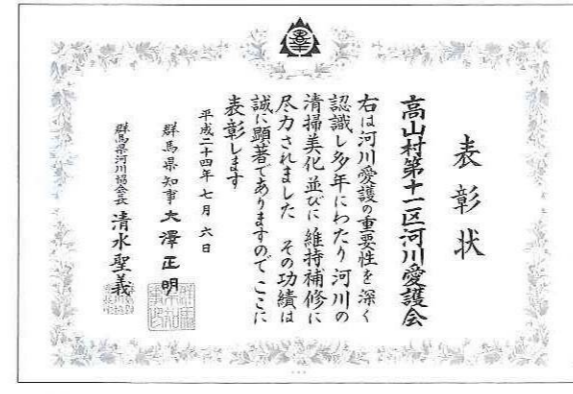 表彰状
高山村第十一区河川愛護会
右は河川愛護の重要性を深く
認識し多年にわたり河川の
清掃美化並びに維持補修に
尽力されました その功績は
誠に顕著でありますので ここに
表彰します
平成二十四年七月六日
群馬県知事 大澤正明
群馬県河川協会長 清水聖義